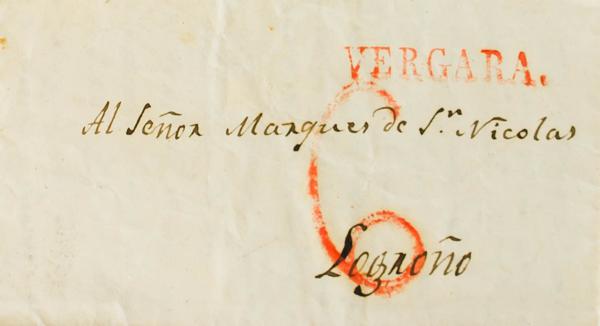 VERGARA.
Al Señor Marques de Sn. Nicolas
6
Logroño